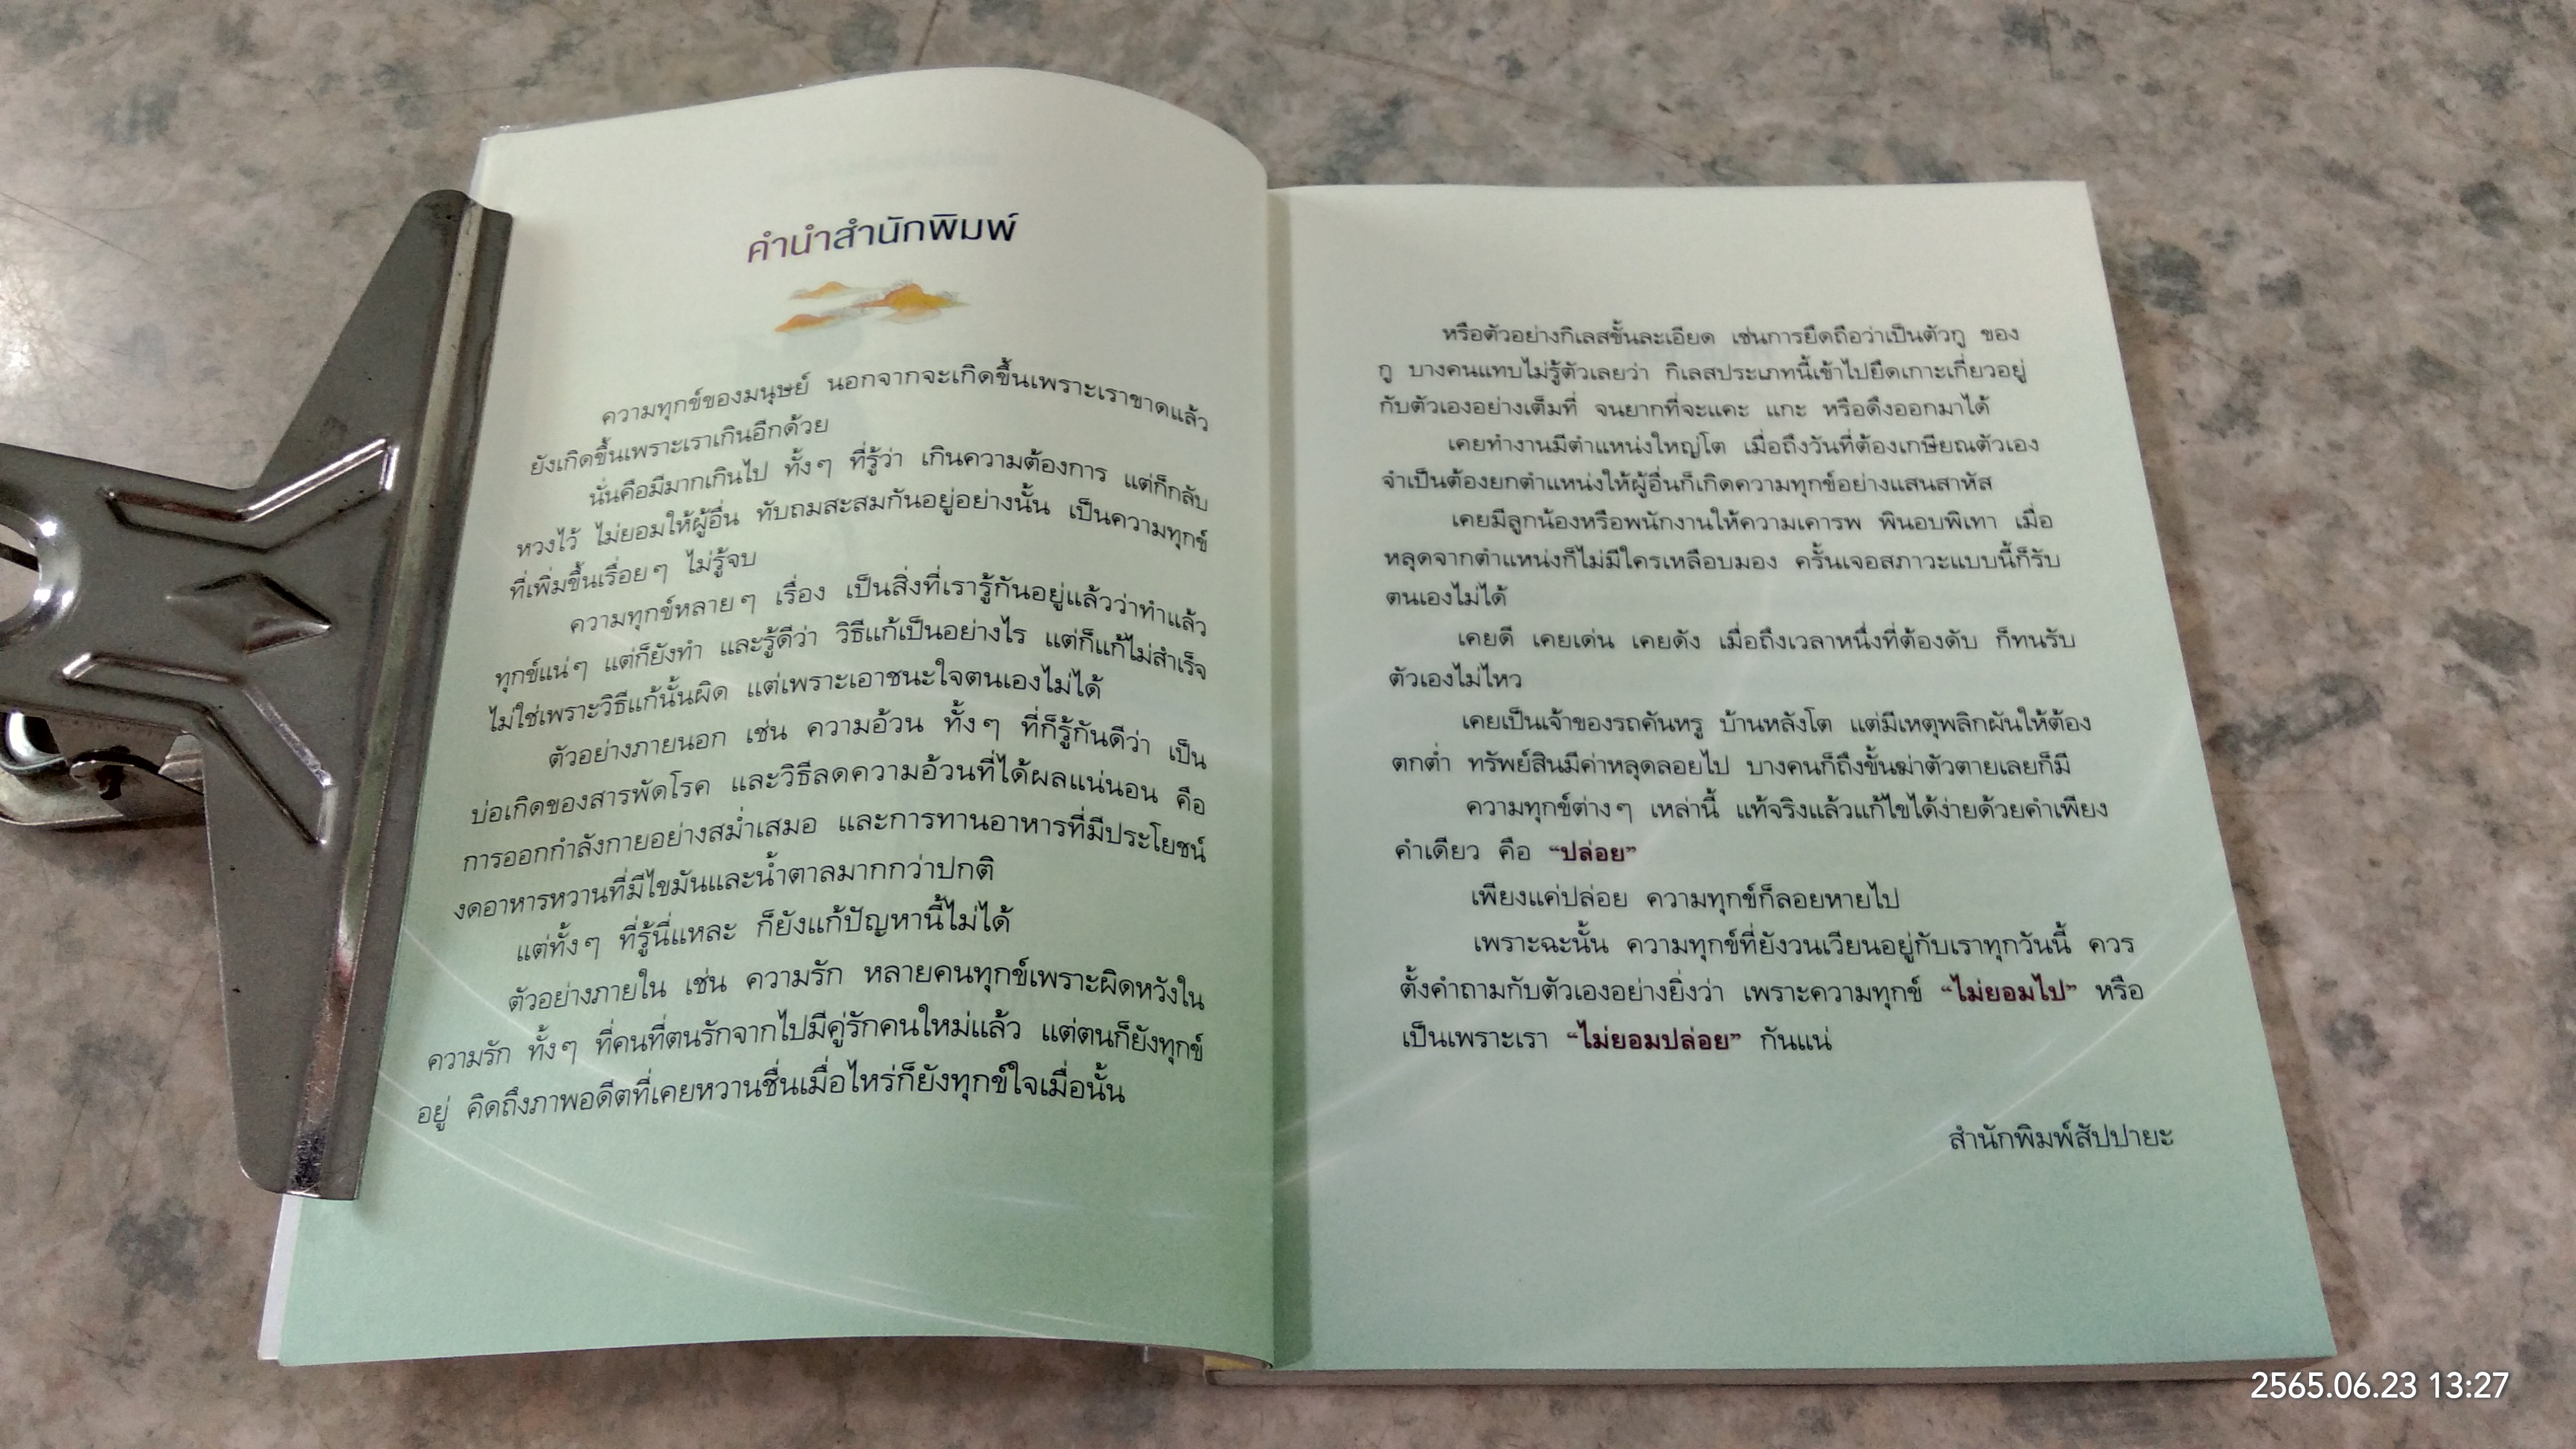 คำนำสำนักพิมพ์
ความทุกข์ของมนุษย์ นอกจากจะเกิดขึ้นเพราะเราขาดแล้ว
ยังเกิดขึ้นเพราะเราเกินอีกด้วย
นั่นคือมีมากเกินไป ทั้งๆ ที่รู้ว่า เกินความต้องการ แต่ก็กลับ
หวงไว้ ไม่ยอมให้ผู้อื่น ทับถมสะสมกันอยู่อย่างนั้น เป็นความทุกข์
ที่เพิ่มขึ้นเรื่อยๆ ไม่รู้จบ
ความทุกข์หลายๆ เรื่อง เป็นสิ่งที่เรารู้กันอยู่แล้วว่าทำแล้ว
ทุกข์แน่ๆ แต่ก็ยังทำ และรู้ดีว่า วิธีแก้เป็นอย่างไร แต่ก็แก้ไม่สำเร็จ
ไม่ใช่เพราะวิธีแก้นั้นผิด แต่เพราะเอาชนะใจตนเองไม่ได้
ตัวอย่างภายนอก เช่น ความอ้วน ทั้งๆ ที่ก็รู้กันดีว่า เป็น
บ่อเกิดของสารพัดโรค และวิธีลดความอ้วนที่ได้ผลแน่นอน คือ
การออกกำลังกายอย่างสม่ำเสมอ และการทานอาหารที่มีประโยชน์
งดอาหารหวานที่มีไขมันและน้ำตาลมากกว่าปกติ
แต่ทั้งๆ ที่รู้นี่แหละ ก็ยังแก้ปัญหานี้ไม่ได้
ตัวอย่างภายใน เช่น ความรัก หลายคนทุกข์เพราะผิดหวังใน
ความรัก ทั้งๆ ที่คนที่ตนรักจากไปมีคู่รักคนใหม่แล้ว แต่ตนก็ยังทุกข์
อยู่ คิดถึงภาพอดีตที่เคยหวานชื่นเมื่อไหร่ก็ยังทุกข์ใจเมื่อนั้น
หรือตัวอย่างกิเลสขั้นละเอียด เช่นการยึดถือว่าเป็นตัวกู ของ
กู บางคนแทบไม่รู้ตัวเลยว่า กิเลสประเภทนี้เข้าไปยึดเกาะเกี่ยวอยู่
กับตัวเองอย่างเต็มที่ จนยากที่จะแคะ แกะ หรือดึงออกมาได้
เคยทำงานมีตำแหน่งใหญ่โต เมื่อถึงวันที่ต้องเกษียณตัวเอง
จำเป็นต้องยกตำแหน่งให้ผู้อื่นก็เกิดความทุกข์อย่างแสนสาหัส
เคยมีลูกน้องหรือพนักงานให้ความเคารพ พินอบพิเทา เมื่อ
หลุดจากตำแหน่งก็ไม่มีใครเหลือบมอง ครั้นเจอสภาวะแบบนี้ก็รับ
ตนเองไม่ได้
เคยดี เคยเด่น เคยดัง เมื่อถึงเวลาหนึ่งที่ต้องดับ ก็ทนรับ
ตัวเองไม่ไหว
เคยเป็นเจ้าของรถคันหรู บ้านหลังโต แต่มีเหตุพลิกผันให้ต้อง
ตกต่ำ ทรัพย์สินมีค่าหลุดลอยไป บางคนก็ถึงขั้นฆ่าตัวตายเลยก็มี
ความทุกข์ต่างๆ เหล่านี้ แท้จริงแล้วแก้ไขได้ง่ายด้วยคำเพียง
คำเดียว คือ “ปล่อย”
เพียงแค่ปล่อย ความทุกข์ก็ลอยหายไป
เพราะฉะนั้น ความทุกข์ที่ยังวนเวียนอยู่กับเราทุกวันนี้ ควร
ตั้งคำถามกับตัวเองอย่างยิ่งว่า เพราะความทุกข์ “ไม่ยอมไป” หรือ
เป็นเพราะเรา “ไม่ยอมปล่อย” กันแน่
สำนักพิมพ์สัปปายะ
2565.06.23 13:27